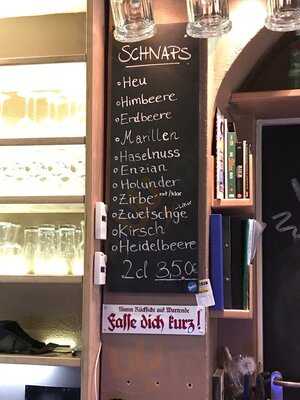 SCHNAPS
Heu
Himbeere
Erdbeere
Marillen
Haselnuss
Enzian
Holunder
Zirbe -rot/klar
Zwetschge -Likör
Kirsch
Heidelbeere
2cl 3,50€
Nimm Rücksicht auf Wartende
Fasse dich kurz!